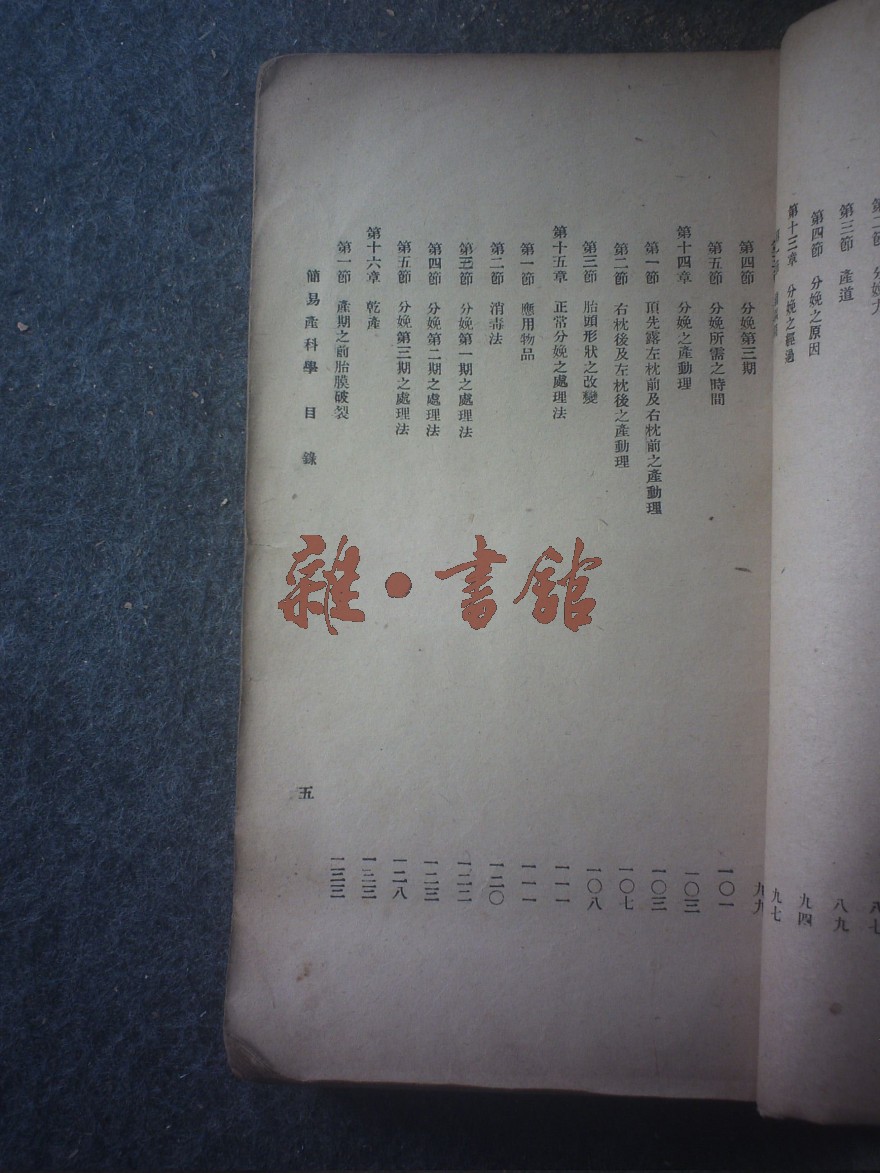 第二節 分娩力 八七
第三節 產道 八九
第四節 分娩之原因 九四
第十三章 分娩之經過 九七
第四節 分娩第三期 九九
第五節 分娩所需之時間 一〇一
第十四章 分娩之產動理 一〇三
第一節 頂先露左枕前及右枕前之產動理 一〇三
第二節 右枕後及左枕後之產動理 一〇七
第三節 胎頭形狀之改變 一〇八
第十五章 正常分娩之處理法 一一一
第一節 應用物品 一一一
第二節 消毒法 一二〇
第三節 分娩第一期之處理法 一二二
第四節 分娩第二期之處理法 一二三
第五節 分娩第三期之處理法 一二八
第十六章 乾產 一三三
第一節 產期之前胎膜破裂 一三三
簡易產科學 目錄 五
雜·書館